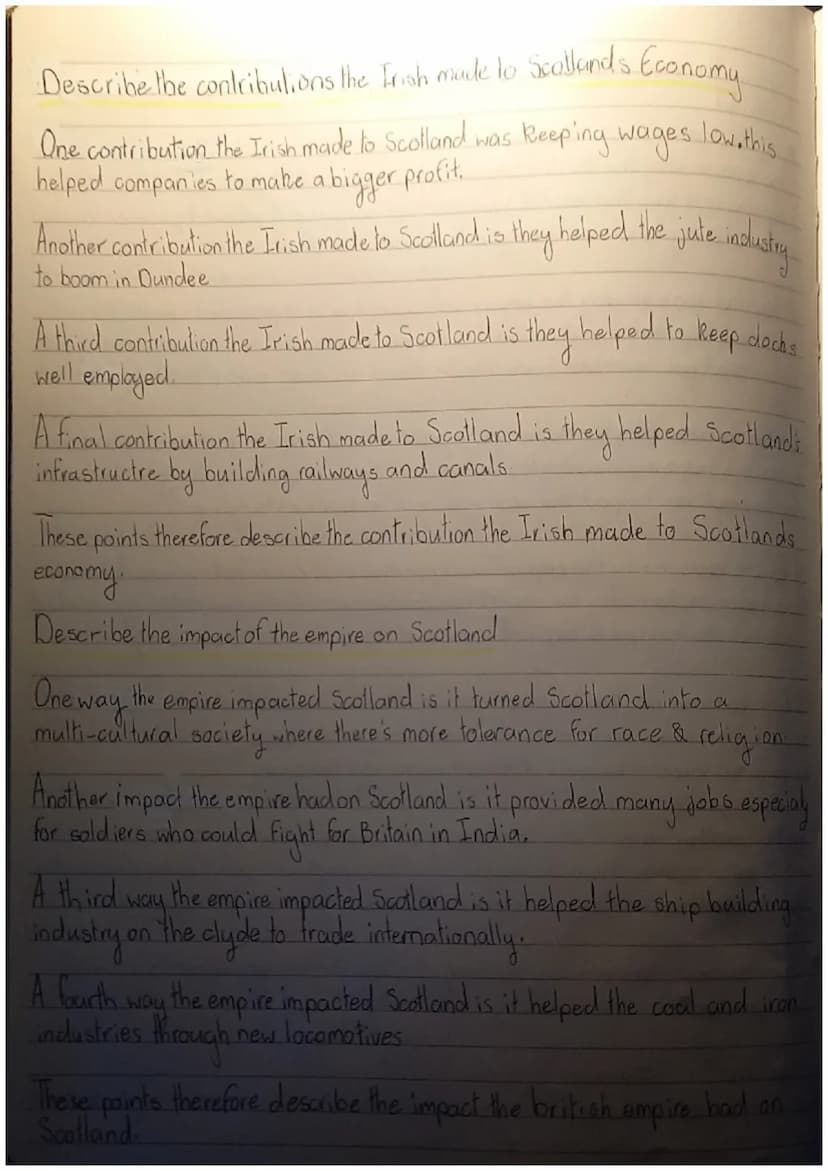 Describe the contributions the Irish made to Scotlands Economy
One contribution the Irish made to Scotland was keeping wages low, this
helped companies to make a bigger profit.
Another contribution the Irish made to Scotland is they helped the jute industry
to boom in Dundee
A third contribution the Irish made to Scotland is they helped to keep docks
well employed.
A final contribution the Irish made to Scotland is they helped Scotlands
infrastructre by building railways and canals
These points therefore describe the contribution the Irish made to Scotlands
economy.
Describe the impact of the empire on Scotland
One way the empire impacted Scotland is it turned Scotland into a
multi-cultural society where there's more tolerance for race & religion
Another impact the empire had on Scotland is it provided many jobs especialy
for soldiers who could fight for Britain in India.
A third way the empire impacted Scotland is it helped the ship building
industry on the clyde to trade internationally.
A fourth way the empire impacted Scotland is it helped the coal and iron
industries through new locomotives
These points therefore describe the impact the british empire had on
Scotland.